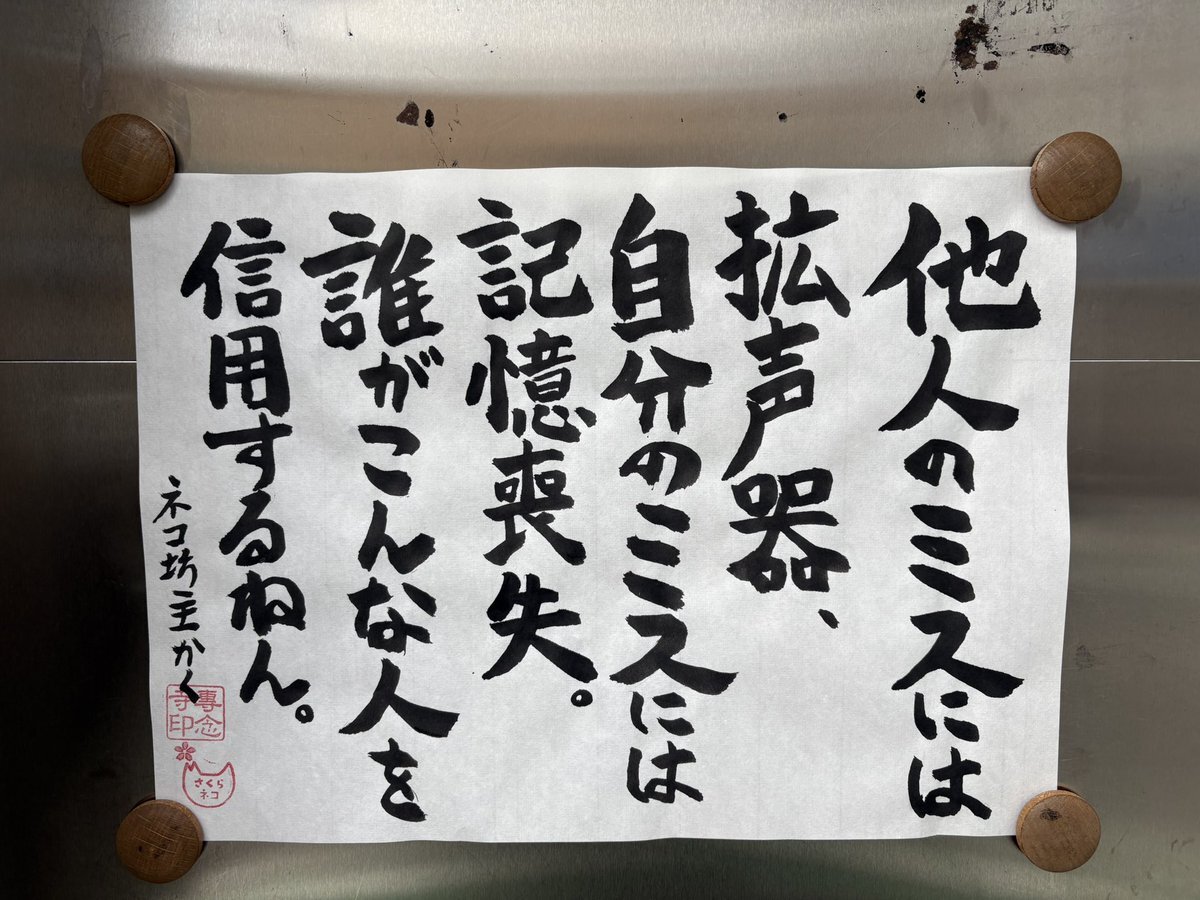 他人のミスには
拡声器、
自分のミスには
記憶喪失。
誰がこんな人を
信用するねん。
ネコ坊主かく
專念
寺印
さくら
ネコ